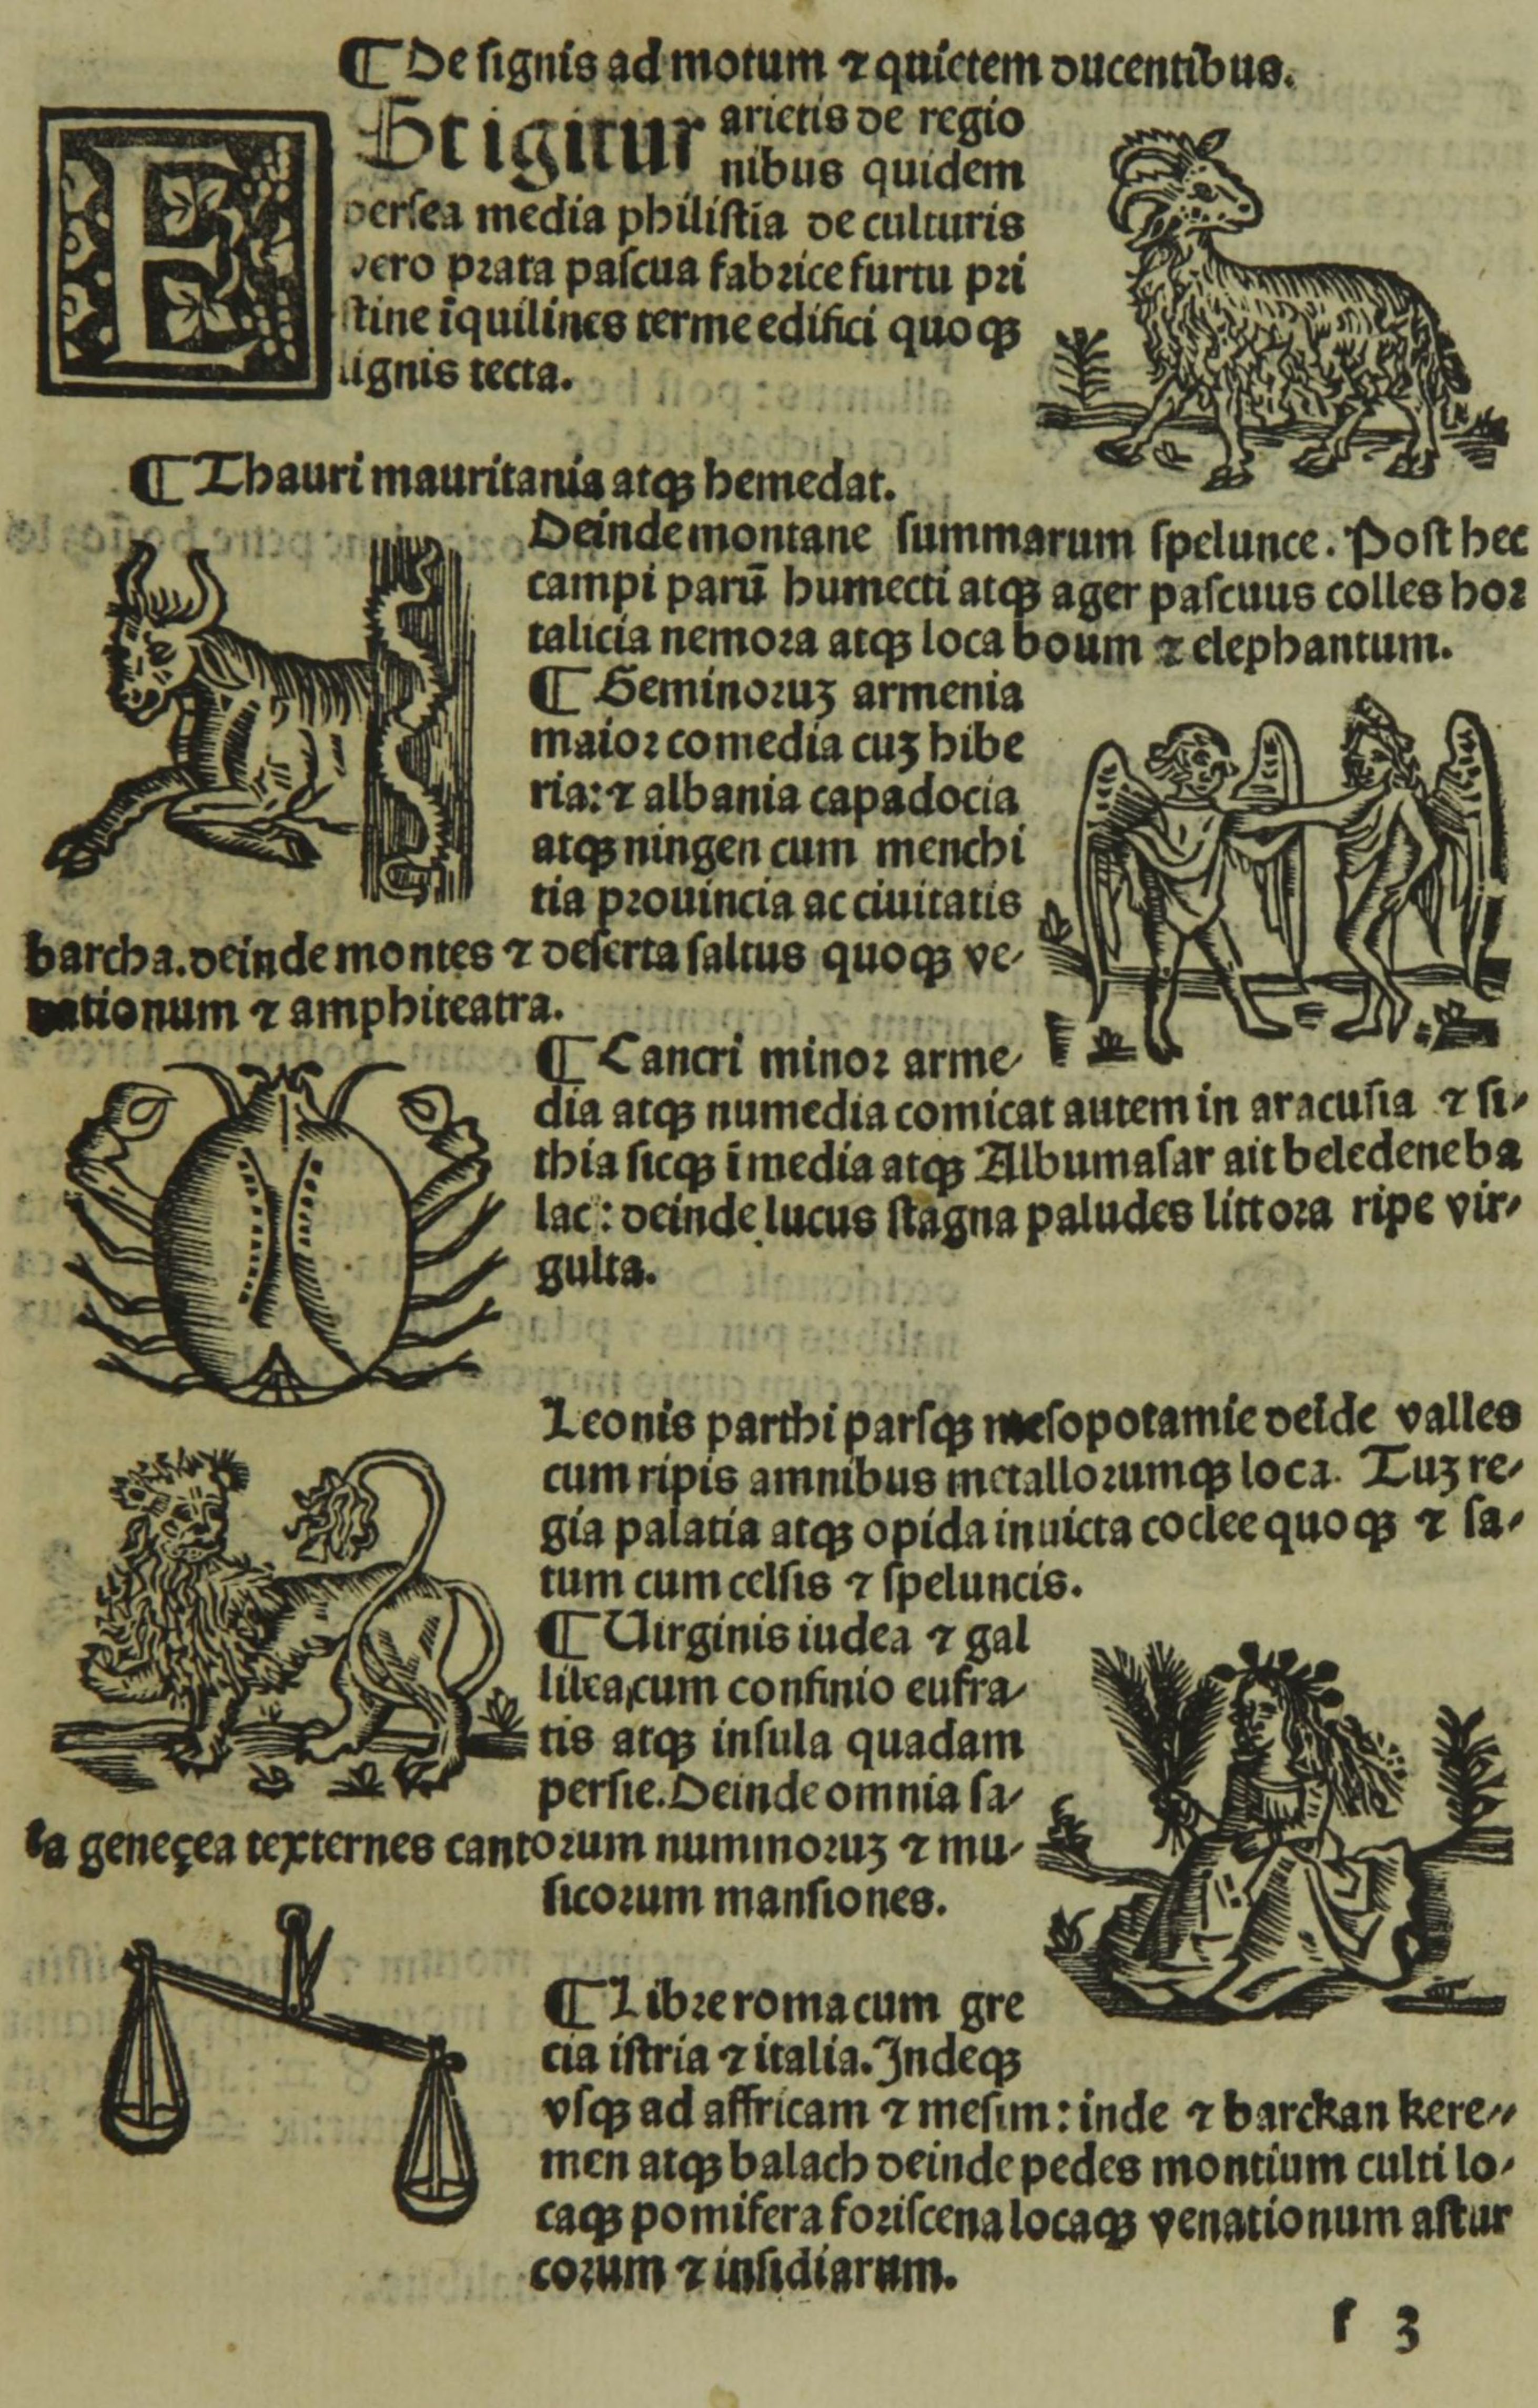 ¶ De ſignis ad motum ⁊ quietem ducentibus.
ESt igitur arietis de regio
nibus quidem
perſea media philiſtia de culturis
vero prata paſcua fabrice furtu pri
ſtine īquilines terme edifici quoqꝫ
lignis tecta.
¶ Thauri mauritania atqꝫ hemedat.
Deinde montane ſummarum ſpelunce. Poſt hec
campi parū humecti atqꝫ ager paſcuus colles hor
talicia nemora atqꝫ loca boum ⁊ elephantum.
¶ Geminoruꝫ armenia
maior comedia cuꝫ hibe
ria: ⁊ albania capadocia
atqꝫ ningen cum menchi
tia prouincia ac ciuitatis
barcha. deinde montes ⁊ deſerta ſaltus quoqꝫ ve-
nationum ⁊ amphiteatra.
¶ Cancri minor arme-
dia atqꝫ numedia comicat autem in aracuſia ⁊ ſi-
thia ſicqꝫ ī media atqꝫ Albumaſar ait beledeneba
lac: deinde lucus ſtagna paludes littora ripe vir-
gulta.
Leonis parthi parſqꝫ meſopotamie deīde valles
cum ripis amnibus metallorumqꝫ loca. Tuꝫ re-
gia palatia atqꝫ opida inuicta coclee quoqꝫ ⁊ ſa-
tum cum celſis ⁊ ſpeluncis.
¶ Uirginis iudea ⁊ gal
lilea cum confinio eufra-
tis atqꝫ inſula quadam
perſie. Deinde omnia ſa-
ta geneçea texternes cantorum nummoruꝫ ⁊ mu-
ſicorum manſiones.
¶ Libre roma cum gre
cia iſtria ⁊ italia. Indeqꝫ
vſqꝫ ad affricam ⁊ meſim: inde ⁊ barckan kere-
men atqꝫ balach deinde pedes montium culti lo-
caqꝫ pomifera foriſcena locaqꝫ venationum aſtur
corum ⁊ inſidiarum.
f 3